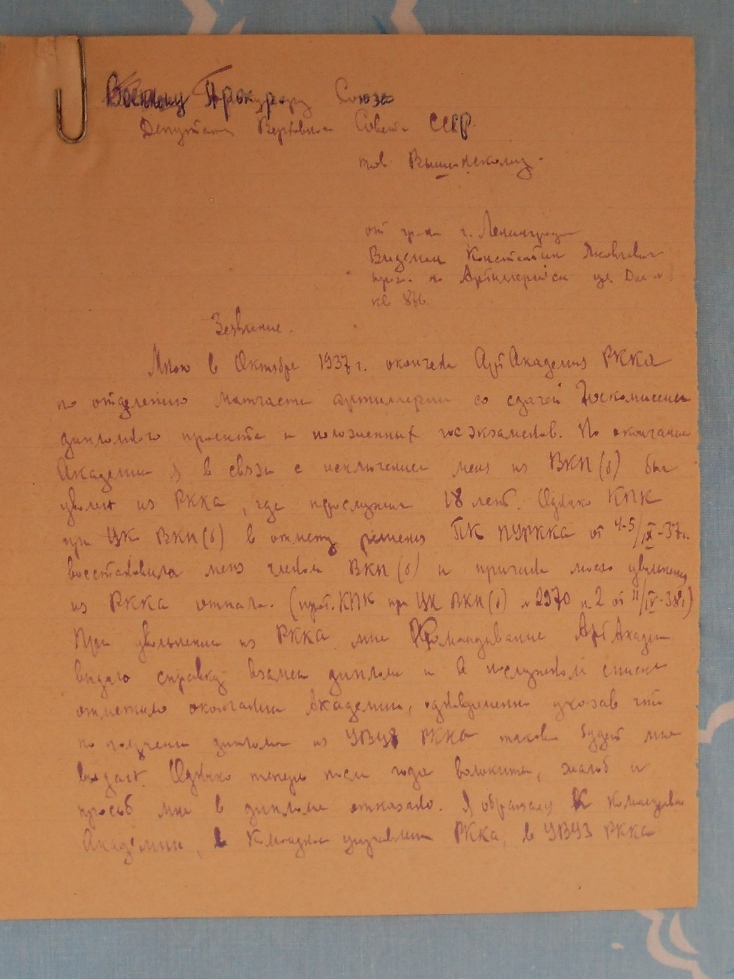 Военному Прокурору Союза
Депутату Верховного Совета СССР
тов Вышинскому.
от гр-на г. Ленинграда
Видеман Константин Яковлевич
прож. по Артиллерийской ул Дом
кв 836
Заявление.
Мною в Октябре 1937 г. окончена Арт Академия РККА
по отделению матчасти артиллерии со сдачей Госкомиссии
дипломного проекта и положенных госэкзаменов. По окончании
Академии я в связи с исключением меня из ВКП(б) был
уволен из РККА, где прослужил 18 лет. Однако КПК
при ЦК ВКП(б) в отмену решения ПК ПУРККА от 4-5/IX-37г.
восстановила меня членом ВКП(б) и причина моего увольнения
из РККА отпала. (прот. КПК при ЦК ВКП(б) № 2970 п. 2 от 11/IV-38г)
При увольнении из РККА мне Командование Арт Академии
выдало справку взамен диплома и в послужном списке
отметило окончание Академии, одновременно указав что
по получении диплома из УВУЗ РККА таковой будет мне
выдан. Однако теперь после года волокиты, жалоб и
просьб мне в дипломе отказано. Я обращался к командованию
Академии, в Командное управление РККА, в УВУЗ РККА